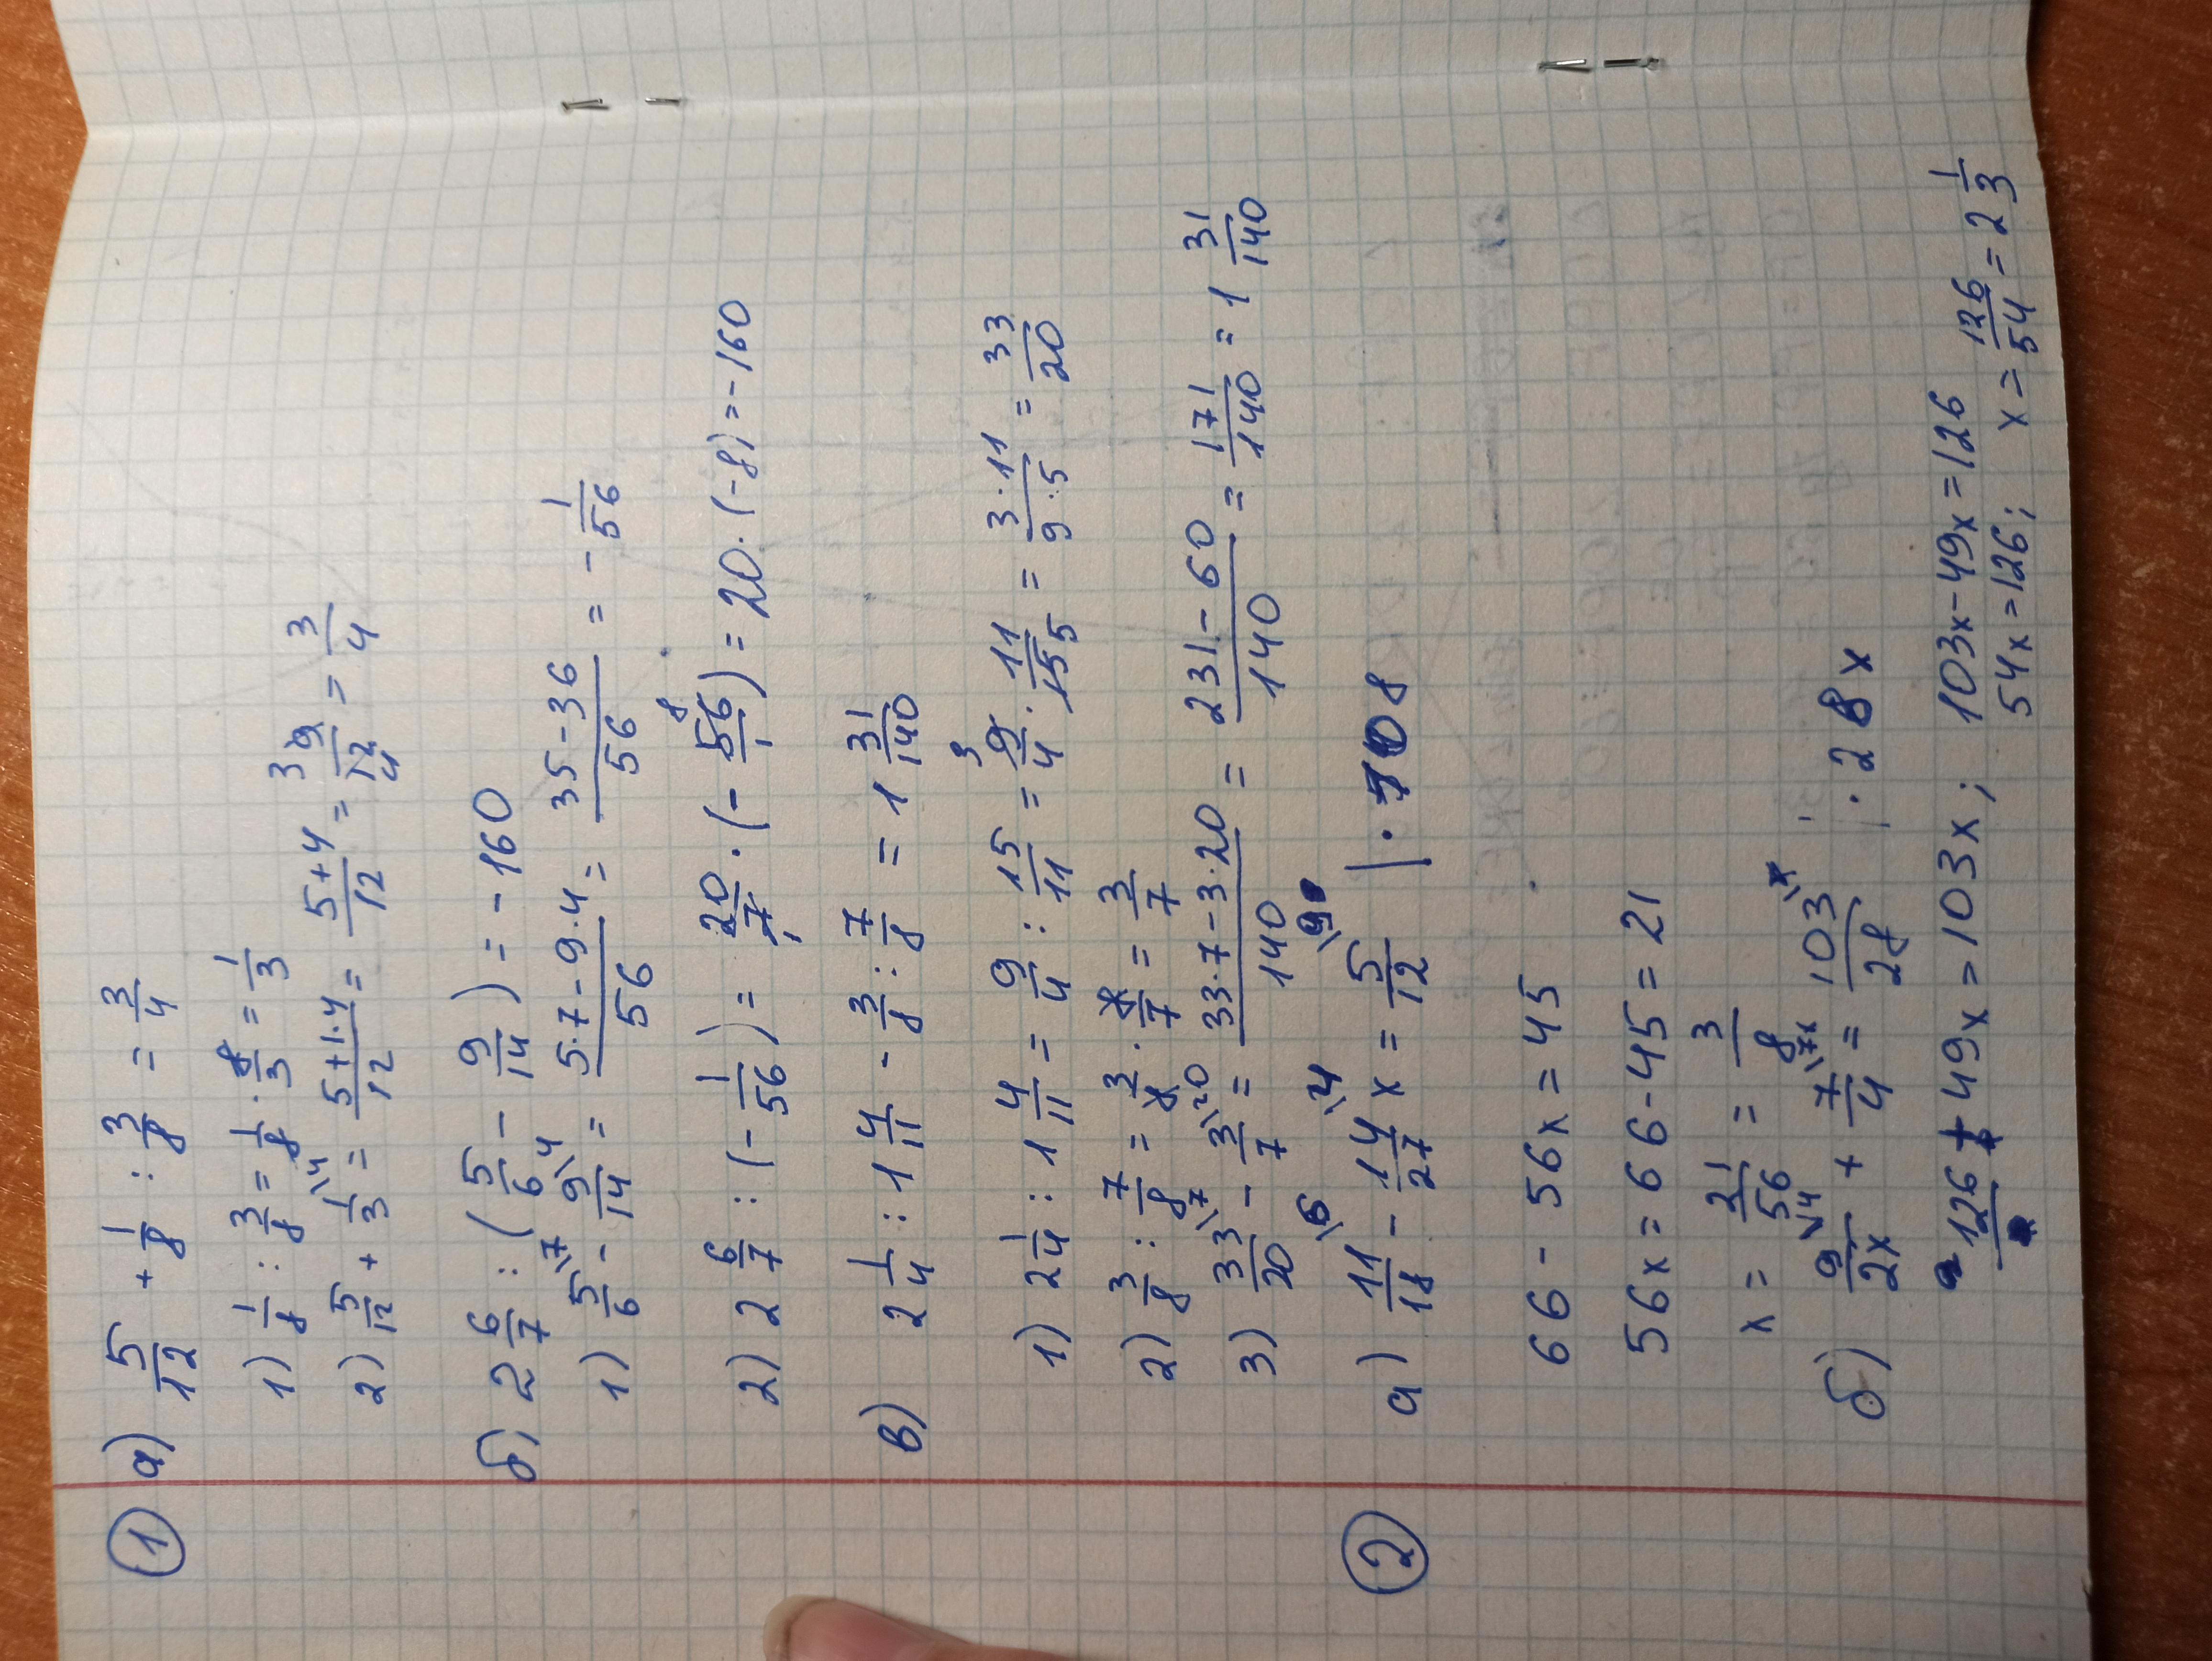 ① а) 5/12 + 1/8 : 3/8 = 3/4
1) 1/8 : 3/8 = 1/8 · 8/3 = 1/3
2) 5/12 + 1/3\4 = 5+1·4/12 = 5+4/12 = 9 3/12 4 = 3/4
б) 2 6/7 : (5/6 - 9/14) = -160
1) 5/6\7 - 9/14\4 = 5·7-9·4/56 = 35-36/56 = -1/56
2) 2 6/7 : (-1/56) = 20/7 1 · (-56 8/1) = 20·(-8) = -160
в) 2 1/4 : 1 4/11 - 3/8 : 7/8 = 1 31/140
1) 2 1/4 : 1 4/11 = 9/4 : 15/11 = 9 3/4 · 11/15 5 = 3·11/9·5 = 33/20
2) 3/8 : 7/8 = 3/8 · 8/7 = 3/7
3) 33/20\7 - 3/7\20 = 33·7-3·20/140 = 231-60/140 = 171/140 = 1 31/140
② а) 11/18\6 - 14/27\4 x = 5/12\9 | ·108
66 - 56x = 45
56x = 66-45 = 21
x = 21/56 = 3/8
б) 9/2x\14 + 7/4\7x = 103/28\x | ·28x
126 + 49x = 103x; 103x-49x=126
54x=126; x = 126/54 = 2 1/3